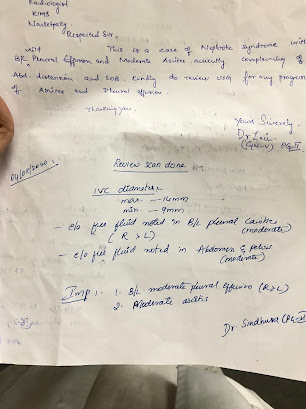 Radiologist
KIMS
Narketpally.
Respected Sir,
This is a case of Nephrotic syndrome with
mild B/L Pleural Effusion and Moderate Ascites currently complaining of
Abd. distention and SOB. Kindly do review USG for any progress
of Ascites and Pleural effusion.
Thanking you.
Yours Sincerely,
Dr
PG
04/05/2020
Review scan done
IVC diameter
max. - 14mm
min. - 9mm
- e/o free fluid noted in B/L pleural cavities
( R > L) (moderate)
- e/o free fluid noted in Abdomen & pelvis
(moderate)
Imp :- 1. B/L moderate pleural effusion (R>L)
2. Moderate ascitis
Dr. Sindhura (PG-